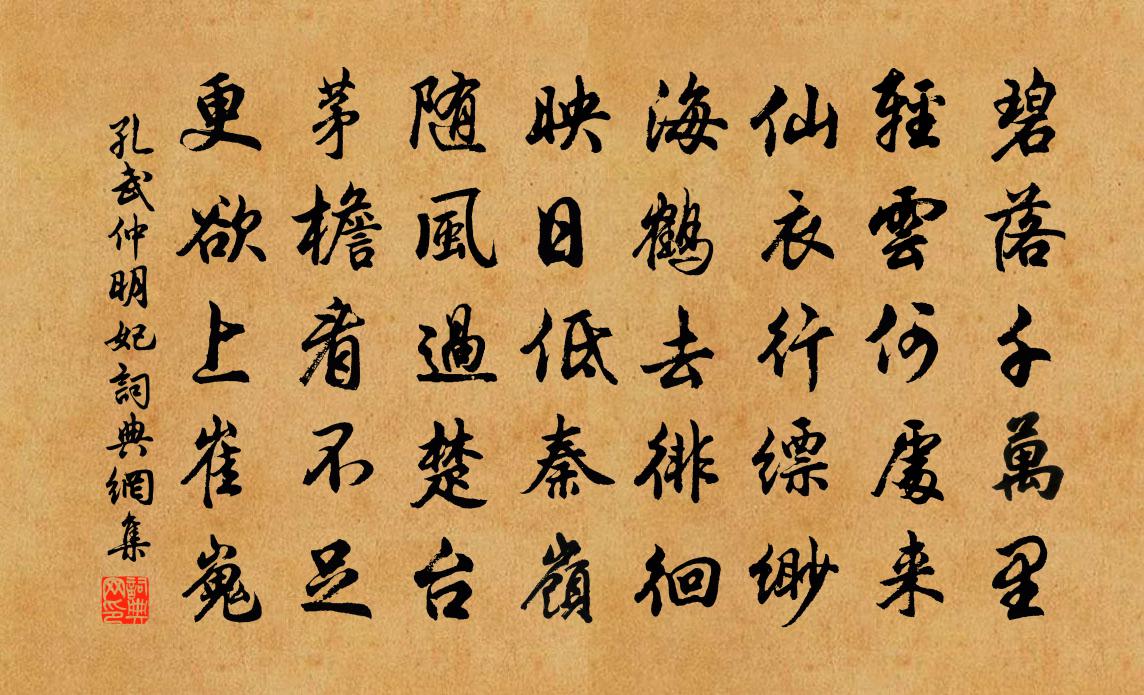 碧落千萬里
輕雲何處来
仙衣行縹緲
海鶴去徘徊
映日低秦嶺
随風過楚台
茅檐看不足
更欲上崔嵬
孔武仲明妃詞典網集
詞典网印